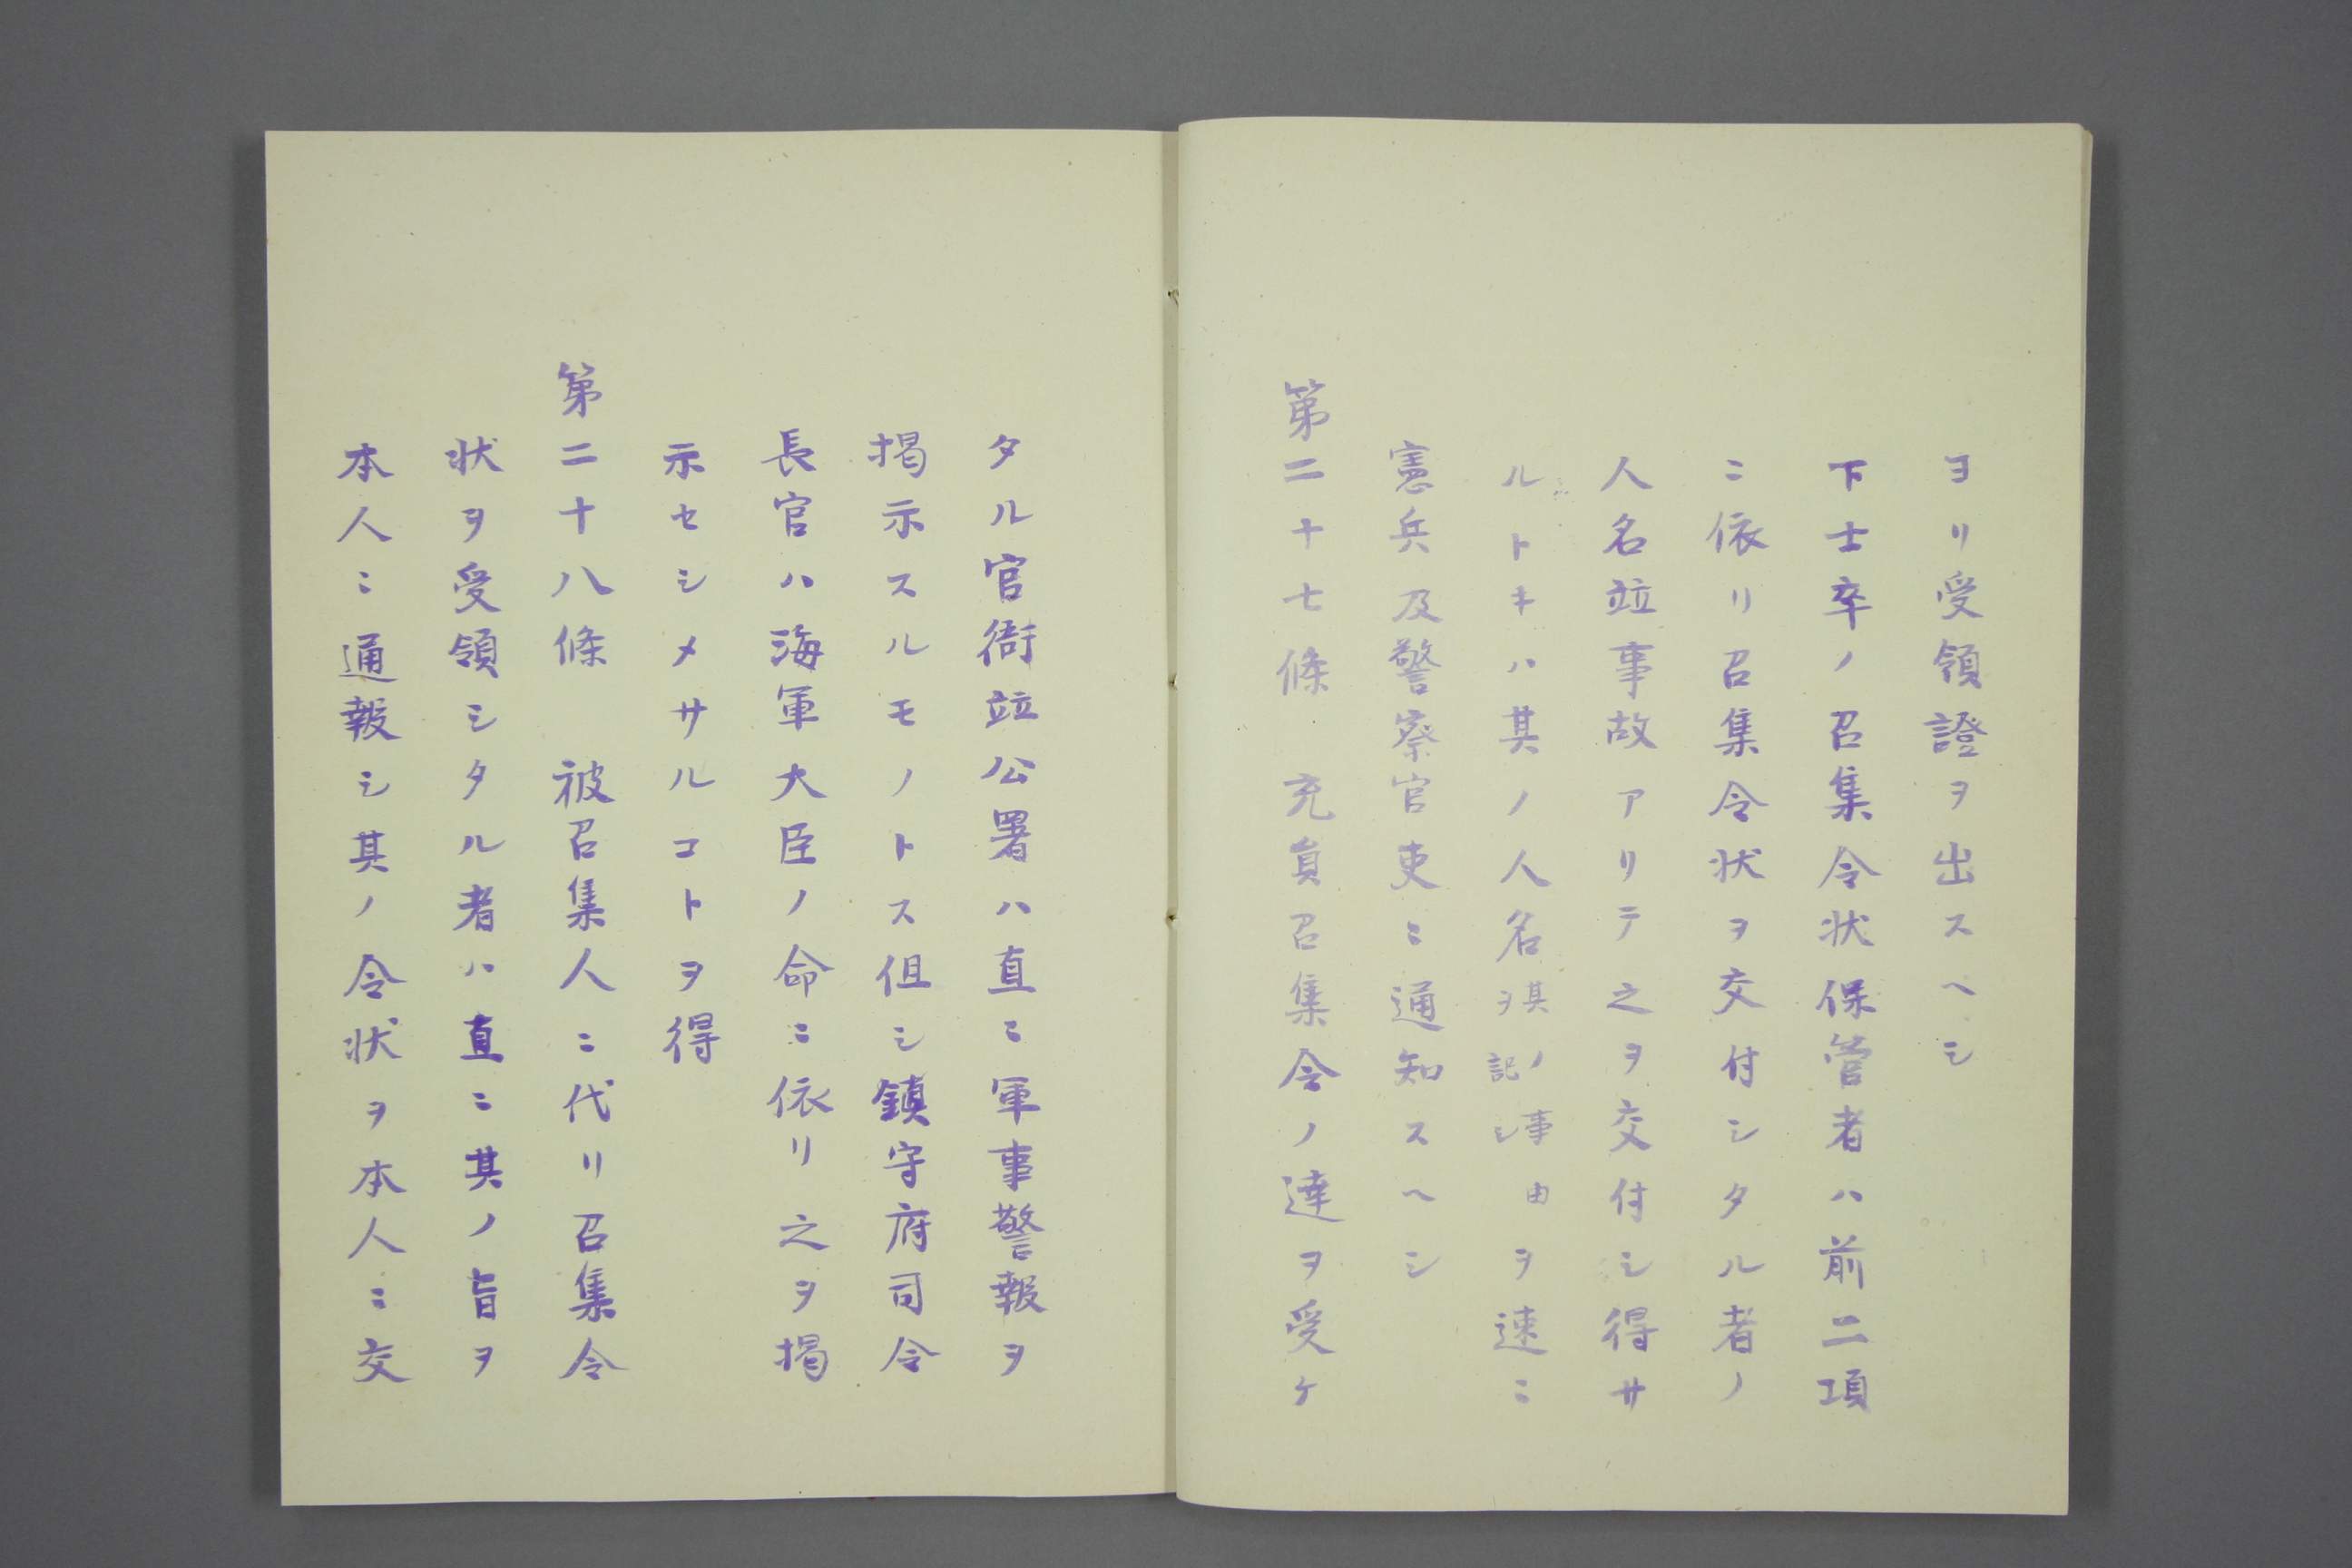 ヨリ受領證ヲ出スヘシ
下士卒ノ召集令状保管者ハ前二項
ニ依リ召集令状ヲ交付シタル者ノ
人名竝事故アリテ之ヲ交付シ得サ
ルトキハ其ノ人名其ノ事由ヲ記シヲ速ニ
憲兵及警察官吏ニ通知スヘシ
第二十七條　充員召集令ノ達ヲ受ケ
タル官衙竝公署ハ直ニ軍事警報ヲ
掲示スルモノトス但シ鎮守府司令
長官ハ海軍大臣ノ命ニ依リ之ヲ掲
示セシメサルコトヲ得
第二十八條　被召集人ニ代リ召集令
状ヲ受領シタル者ハ直ニ其ノ旨ヲ
本人ニ通報シ其ノ令状ヲ本人ニ交